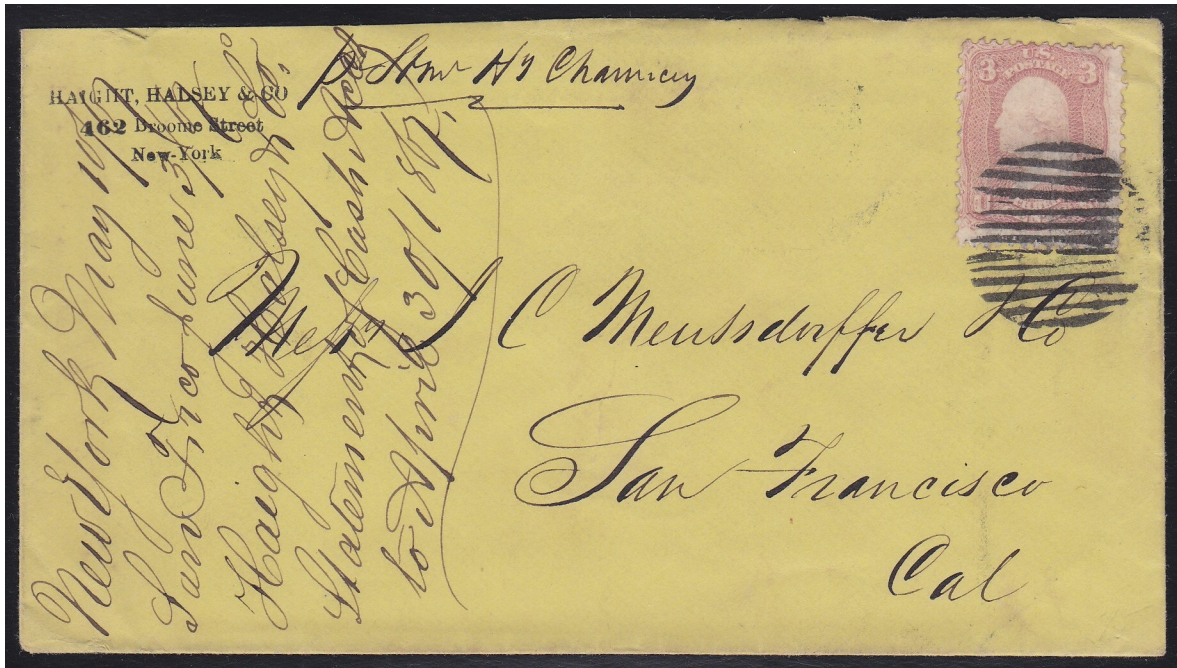 HAIGHT, HALSEY & CO
462 Broome Street
New-York
P Stmr Hy Chauncey
U.S.
POSTAGE
3 3
Messrs C Meussdorffer & Co
San Francisco
Cal
New York May 10/67
San Fr co June 3/67
Haight Halsey & Co.
Statement of Cash
to April 30/1867,